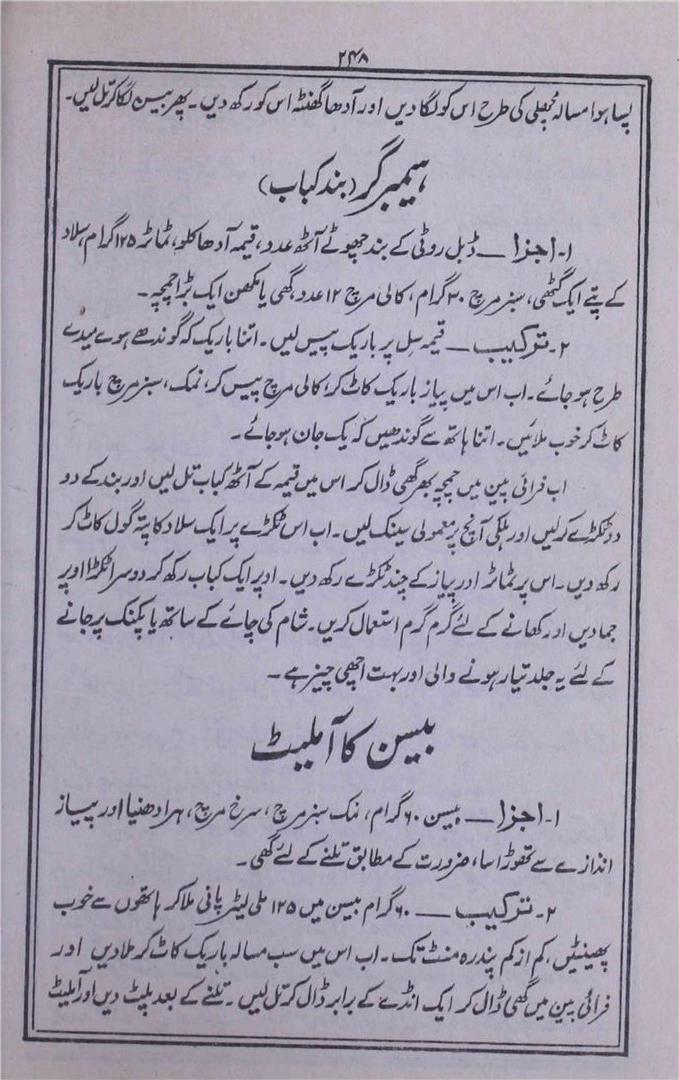 ۲۴۸
پسا ہوا مسالہ مچھلی کی طرح اس کو لگا دیں اور آدھا گھنٹہ اس کو رکھ دیں۔ پھر بیسن لگا کر تل لیں۔
ہیمبرگر (بند کباب)
۱۔ اجزا — ڈبل روٹی کے بند چھوٹے آٹھ عدد، قیمہ آدھا کلو، ٹماٹر ۱۲۵ گرام، سلاد
کے پتے ایک گٹھی، سبز مرچ ۳۰ گرام، کالی مرچ ۱۲ عدد، گھی یا مکھن ایک بڑا چمچہ۔
۲۔ ترکیب — قیمہ سل پر باریک پیس لیں۔ اتنا باریک کہ گوندھے ہوے میدے
طرح ہو جائے۔ اب اس میں پیاز باریک کاٹ کر، کالی مرچ پیس کر، نمک، سبز مرچ باریک
کاٹ کر خوب ملائیں۔ اتنا ہاتھ سے گوندھیں کہ یک جان ہو جائے۔
اب فرائی پین میں چمچہ بھر گھی ڈال کر اس میں قیمہ کے آٹھ کباب تل لیں اور بند کے دو
دو ٹکڑے کر لیں اور ہلکی آنچ پر معمولی سینک لیں۔ اب اس ٹکڑے پر ایک سلاد کا پتہ گول کاٹ کر
رکھ دیں۔ اس پر ٹماٹر اور پیاز کے چند ٹکڑے رکھ دیں۔ اوپر ایک کباب رکھ کر دوسرا ٹکڑا اوپر
جما دیں اور کھانے کے لئے گرم گرم استعمال کریں۔ شام کی چائے کے ساتھ یا پکنک پر جانے
کے لئے یہ جلد تیار ہونے والی اور بہت اچھی چیز ہے۔
بیسن کا آملیٹ
۱۔ اجزا — بیسن ۶۰ گرام، نمک سبز مرچ، سرخ مرچ، ہرا دھنیا اور پیاز
اندازے سے تھوڑا سا، ضرورت کے مطابق تلنے کے لئے گھی۔
۲۔ ترکیب — ۶۰ گرام بیسن میں ۱۲۵ ملی لیٹر پانی ملا کر ہاتھوں سے خوب
پھینٹیں، کم از کم پندرہ منٹ تک۔ اب اس میں سب مسالہ باریک کاٹ کر ملا دیں اور
فرائی پین میں گھی ڈال کر ایک انڈے کے برابر ڈال کر تل لیں۔ تلنے کے بعد پلٹ دیں اور آملیٹ